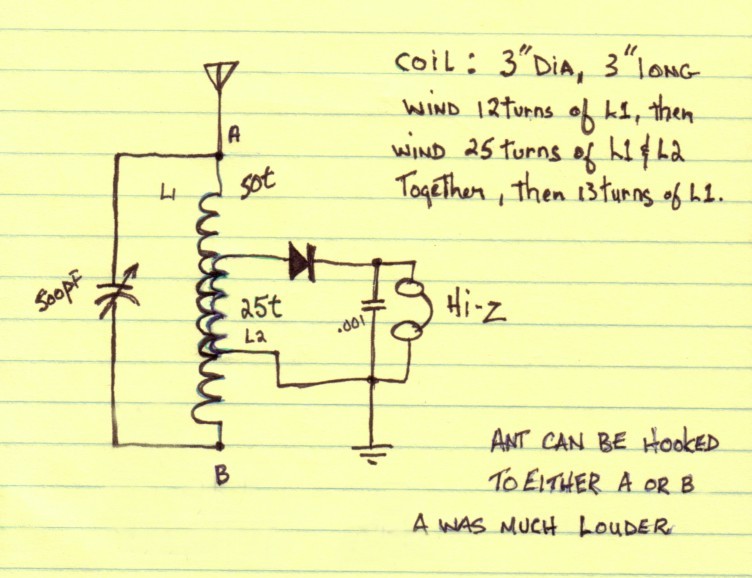 COIL: 3" DIA, 3" LONG
WIND 12 turns of L1, then
WIND 25 turns of L1 & L2
Together, then 13 turns of L1.
A
L1
50t
500pF
25t
L2
.001
Hi-Z
B
ANT CAN BE HOOKED
TO EITHER A OR B
A WAS MUCH LOUDER